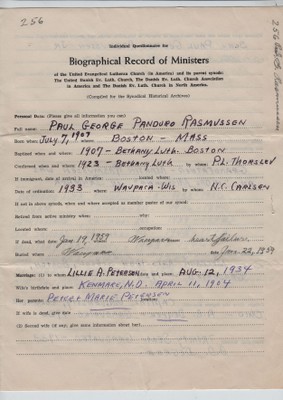 256
256 Paul G. Rasmussen
Individual Questionnaire for
Biographical Record of Ministers
of the United Evangelical Lutheran Church (in America) and its parent synods:
The United Danish Ev. Luth. Church, The Danish Ev. Luth. Church Association
in America and The Danish Ev. Luth. Church in North America.
(Compiled for the Synodical Historical Archives)
Personal Data: (Please give all information you can)
Full name: PAUL GEORGE PANDURO RASMUSSEN
Born when: JULY 7, 1907 where: BOSTON - MASS
Baptized when and where: 1907 - BETHANY LUTH. BOSTON
Confirmed when and where: 1923 - BETHANY LUTH by P.L. THORSLEV
If immigrant, date of arrival in America: Located where:
Date of ordination: 1933 where: WAUPACA - WIS by N.C. CARLSEN
If not in above synods, when and where accepted as member pastor of our synod:
Retired from active ministry when: why:
Located where: occupation:
If dead, what date Jan 19, 1959 Waupaca heart failure
Buried where: Waupaca date Jan. 22, 1959
Marriage: (1) to whom LILLIE A. PETERSEN date and place: AUG. 12, 1934
Wife's birthdate and place: KENMARE, N.D. APRIL 11, 1904
Her parents: PETER & MARIE PETERSEN
If wife is dead, give date
(2) Second wife (if any, give same information about her)